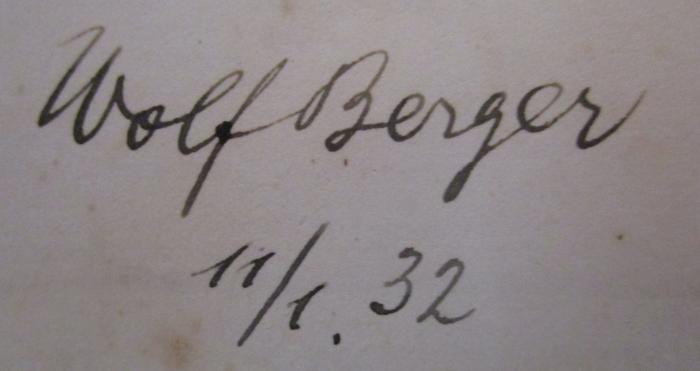 Wolf Berger
11/1. 32